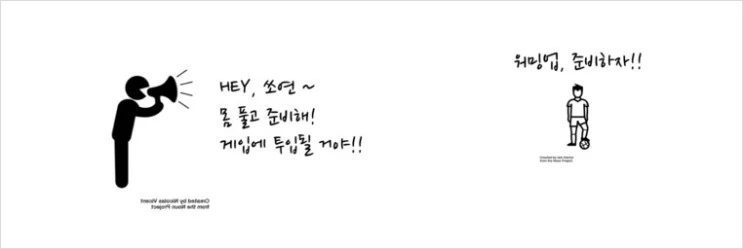 HEY, 쏘연 ~
몸 풀고 준비해!
게임에 투입될 거야!!
Created by Nicolas Vicent
from the Noun Project
워밍업, 준비하자!!
from the Noun Project